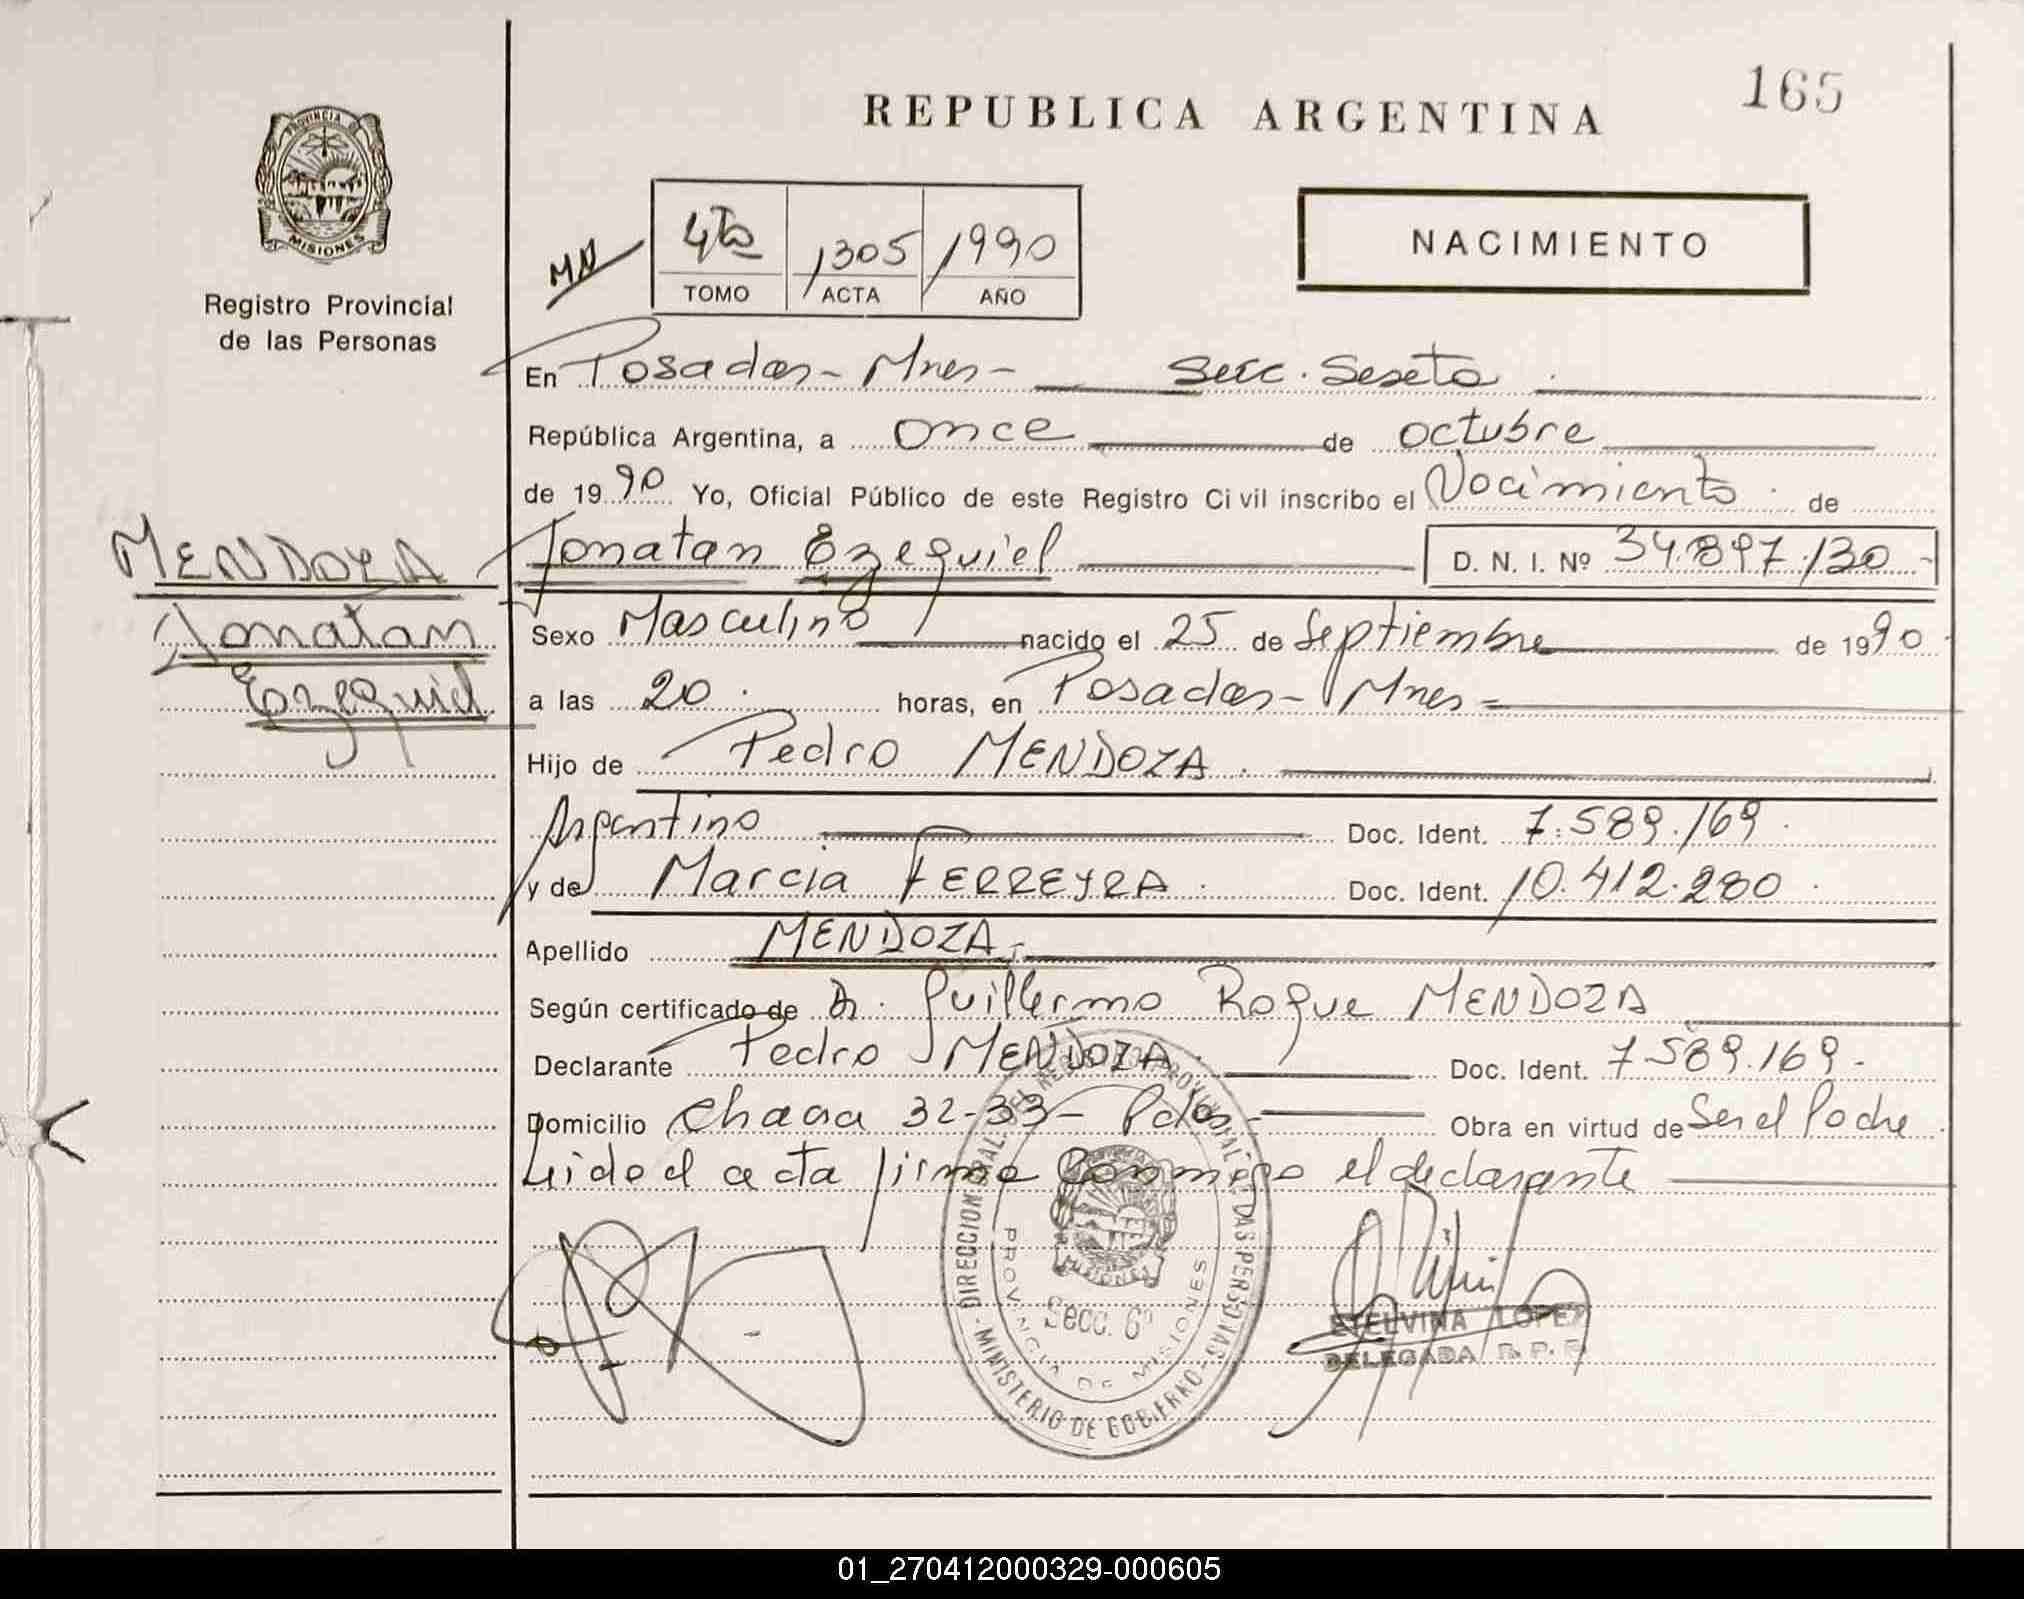 165
REPUBLICA ARGENTINA
PROVINCIA DE
MISIONES
Registro Provincial
de las Personas
4to 1305 1990
TOMO ACTA AÑO
NACIMIENTO
En Posadas - Mnes - Secc. Sexta
República Argentina, a once de octubre
de 1990 Yo, Oficial Público de este Registro Civil inscribo el Nacimiento de
MENDOZA
Jonatan
Ezequiel
Jonatan Ezequiel D. N. I. Nº 34.897.130
Sexo Masculino nacido el 25 de Septiembre de 1990
a las 20 horas, en Posadas - Mnes -
Hijo de Pedro MENDOZA
Argentino Doc. Ident. 7.589.169
y de Marcia FERREYRA Doc. Ident. 10.412.280
Apellido MENDOZA
Según certificado de Dr. Guillermo Roque MENDOZA
Declarante Pedro MENDOZA Doc. Ident. 7.589.169
Domicilio Chacra 32-33 - Pdas - Obra en virtud de Ser el Padre
Leida el acta firma conmigo el declarante
MISIONES
Secc. 6º
PROVINCIA DE MISIONES
MINISTERIO DE GOBIERNO
ETELVINA LOPEZ
DELEGADA R. P. P.
01_270412000329-000605